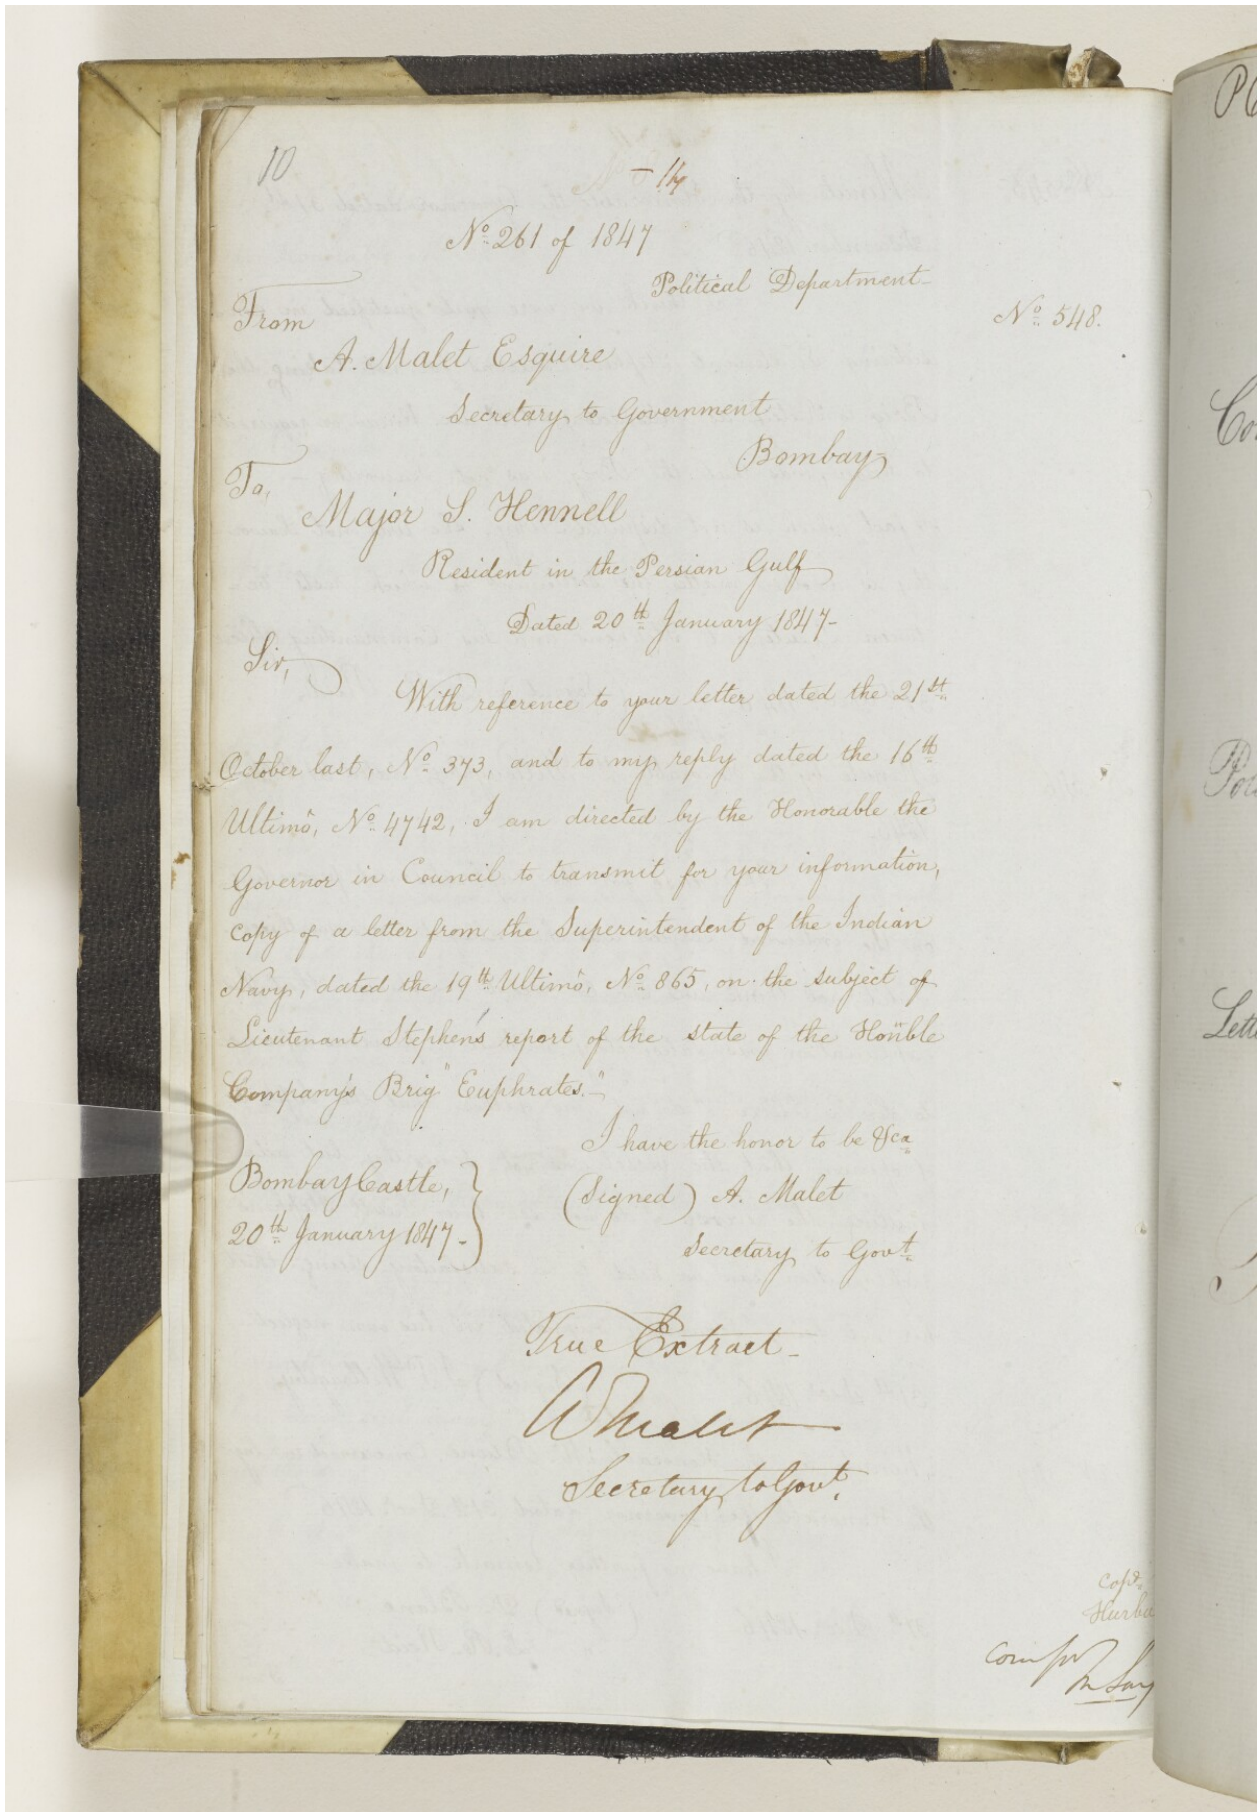 10
14
No. 261 of 1847
Political Department
No. 548.
From
A. Malet Esquire
Secretary to Government
Bombay
To,
Major S. Hennell
Resident in the Persian Gulf
Dated 20th January 1847-
Sir,
With reference to your letter dated the 21st
October last, No. 373, and to my reply dated the 16th
Ultimo, No. 4742, I am directed by the Honorable the
Governor in Council to transmit for your information,
Copy of a letter from the Superintendent of the Indian
Navy, dated the 19th Ultimo, No. 865, on the subject of
Lieutenant Stephen's report of the state of the Hon'ble
Company's Brig "Euphrates."-
I have the honor to be &ca
Bombay Castle,
(Signed) A. Malet
20th January 1847-
Secretary to Govt.
True Extract-
A Malet
Secretary to Govt.